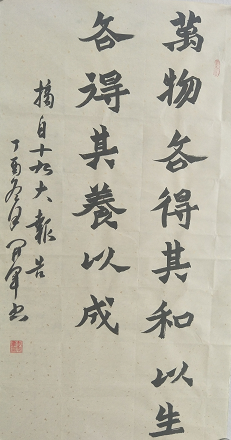 萬物各得其和以生
各得其養以成
摘自十九大報告
丁酉冬月